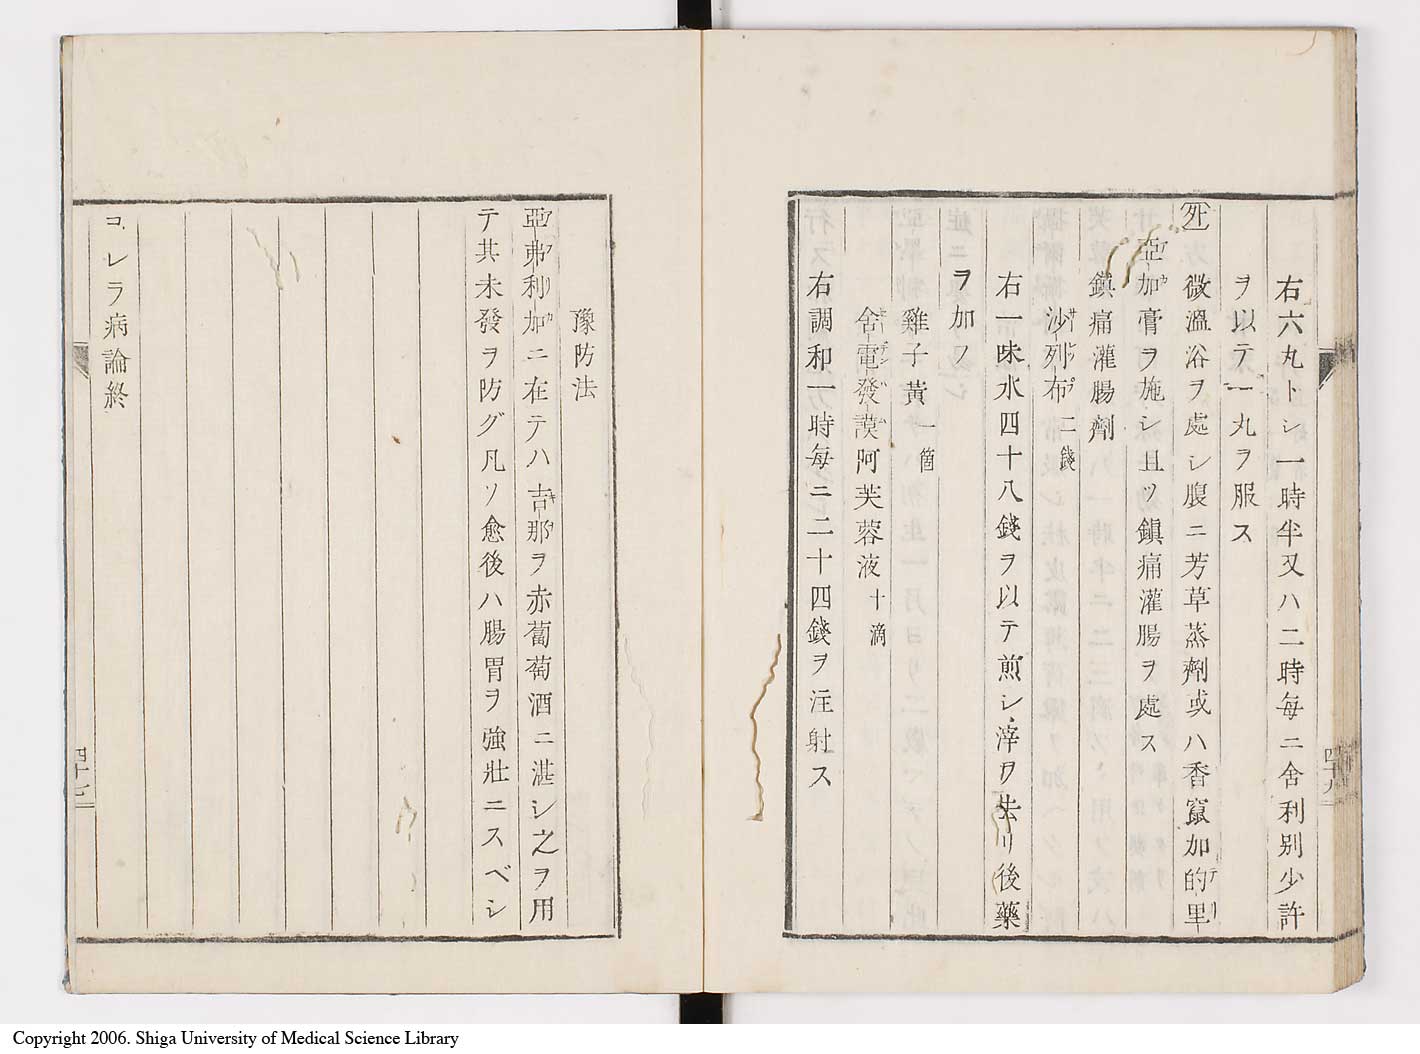 右六丸トシ一時半又ハ二時毎ニ舎利別少許
ヲ以テ一丸ヲ服ス
微溫浴ヲ處シ腹ニ芳草蒸劑或ハ香竄加的里
亞加膏ヲ施シ且ツ鎭痛灌腸ヲ處ス
鎭痛灌腸劑
沙列布 二錢
右一味水四十八錢ヲ以テ煎シ滓ヲ去リ後藥
ヲ加フ
雞子黃 一箇
舍電發謨阿芙蓉液 十滴
右調和一時每ニ二十四錢ヲ注射ス
四十九
豫防法
亞弗利加ニ在テハ吉那ヲ赤葡萄酒ニ湛シ之ヲ用
テ其未發ヲ防グ凡ソ愈後ハ腸胃ヲ強壯ニスベシ
コレラ病論終
四十七
Copyright 2006. Shiga University of Medical Science Library